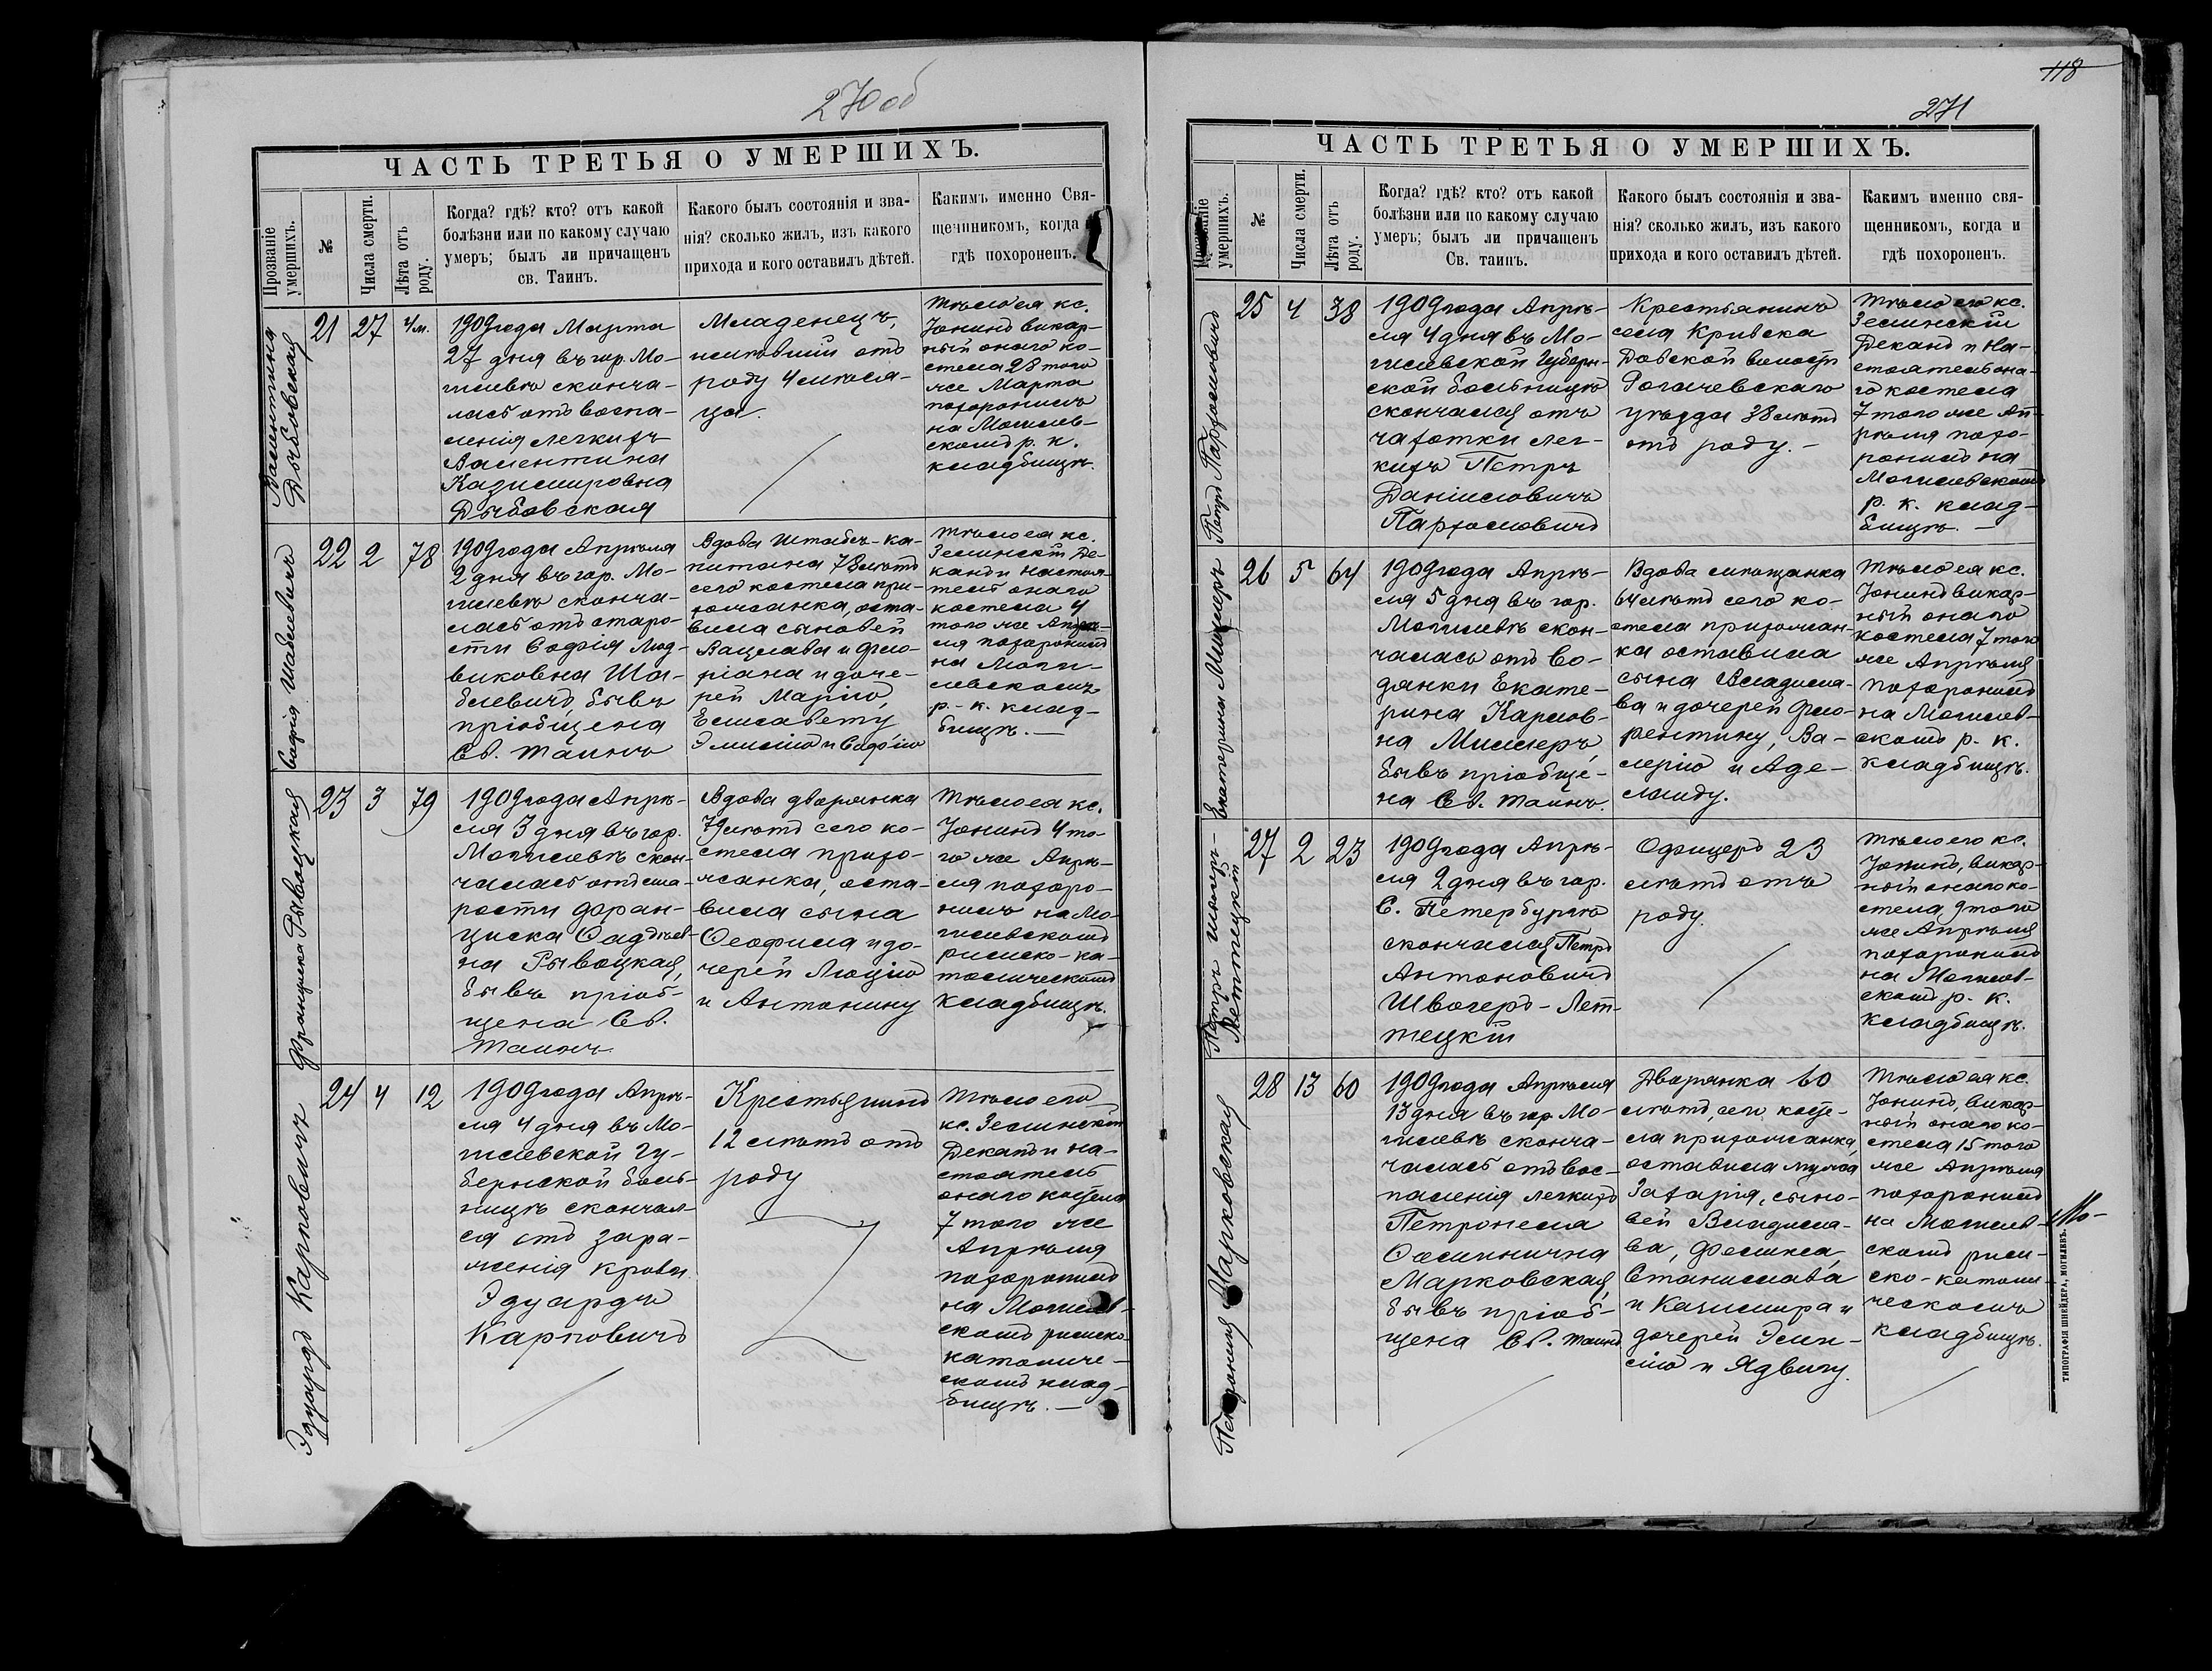 270 об
ЧАСТЬ ТРЕТЬЯ О УМЕРШИХЪ.
Прозваніе
умершихъ.
№
Числа смерти.
Лѣта отъ
роду.
Когда? гдѣ? кто? отъ какой
болѣзни или по какому случаю
умеръ; былъ ли причащенъ
св. Таинъ.
Какого былъ состоянія и зва-
нія? сколько жилъ, изъ какого
прихода и кого оставилъ дѣтей.
Какимъ именно Свя-
щенникомъ, когда
гдѣ похороненъ.
Валентина
Дыбовская
21
27
4 м.
1909 года Марта
27 дня въ гор. Мо-
гилевѣ сконча-
лась отъ воспа-
ленія легкихъ
Валентина
Казимировна
Дыбовская
Младенецъ,
имѣвшій отъ
роду 4 мѣся-
ца.
Тѣло ея кс.
Іонинъ викар-
ный онаго ко-
стела 28 того
же Марта
похоронилъ
на Могилев-
скомъ р. к.
кладбищѣ.
Софія Шаблевичъ
22
2
78
1909 года Апрѣля
2 дня въ гор. Мо-
гилевѣ сконча-
лась отъ старо-
сти Софія Люд-
виковна Ша-
блевичъ, бывъ
пріобщена
Св. Таинъ
Вдова Штабсъ-ка-
питана 78 лѣтъ
сего костела при-
хожанка, оста-
вила сыновей
Вацлава и Фло-
ріана и доче-
рей Марію,
Елисавету
Эмилію и Софію
Тѣло ея кс.
Зелинскій Де-
канъ и настоя-
тель онаго
костела 4
того же Апрѣ-
ля похоронилъ
на Моги-
левскомъ
р.-к. клад-
бищѣ. —
Франциска Рывоцкая
23
3
79
1909 года Апрѣ-
ля 3 дня въ гор.
Могилевѣ скон-
чалась отъ ста-
рости Фран-
циска Фаддѣев-
на Рывоцкая,
бывъ пріоб-
щена Св.
Таинъ
Вдова дворянка
79 лѣтъ сего ко-
стела прихо-
жанка, оста-
вила сына
Ѳеофила и до-
черей Люцію
и Антонину
Тѣло ея кс.
Іонинъ 4 то-
го же Апрѣ-
ля похоро-
нилъ на Мо-
гилевскомъ
римско-ка-
толическомъ
кладбищѣ.
Эдуардъ Карповичъ
24
4
12
1909 года Апрѣ-
ля 4 дня въ Мо-
гилевской Гу-
бернской боль-
ницѣ скончал-
ся отъ зара-
женія крови
Эдуардъ
Карповичъ
Крестьянинъ
12 лѣтъ отъ
роду
Тѣло его
кс. Зелинскій
Деканъ и на-
стоятель
онаго костела
7 того же
Апрѣля
похоронилъ
на Могилев-
скомъ римско-
католиче-
скомъ клад-
бищѣ. —
118
271
ЧАСТЬ ТРЕТЬЯ О УМЕРШИХЪ.
Прозваніе
умершихъ.
№
Числа смерти.
Лѣта отъ
роду.
Когда? гдѣ? кто? отъ какой
болѣзни или по какому случаю
умеръ; былъ ли причащенъ
Св. таинъ.
Какого былъ состоянія и зва-
нія? сколько жилъ, изъ какого
прихода и кого оставилъ дѣтей.
Какимъ именно свя-
щенникомъ, когда и
гдѣ похороненъ.
Петръ Парфоловичъ
25
4
38
1909 года Апрѣ-
ля 4 дня въ Мо-
гилевской Губерн-
ской больницѣ
скончался отъ
чахотки лег-
кихъ Петръ
Даніиловичъ
Парфоловичъ
Крестьянинъ
села Кривска
Довской волости
Рогачевскаго
уѣзда 38 лѣтъ
отъ роду. —
Тѣло его кс.
Зелинскій
Деканъ и На-
стоятель она-
го костела
7 того же Ап-
рѣля похо-
ронилъ на
Могилевскомъ
р. к. клад-
бищѣ. —
Екатерина Миллеръ
26
5
64
1909 года Апрѣ-
ля 5 дня въ гор.
Могилевѣ скон-
чалась отъ во-
дянки Екате-
рина Карлов-
на Миллеръ,
бывъ пріобще-
на Св. Таинъ.
Вдова мѣщанка
64 лѣтъ сего ко-
стела прихожан-
ка оставила
сына Владисла-
ва и дочерей Фло-
рентину, Ва-
лерію и Аде-
лаиду.
Тѣло ея кс.
Іонинъ викар-
ный онаго
костела 7 того
же Апрѣля
похоронилъ
на Могилев-
скомъ р. к.
кладбищѣ.
Петръ
Леттецкій
27
2
23
1909 года Апрѣ-
ля 2 дня въ гор.
С. Петербургѣ
скончался Петръ
Антоновичъ
Швогеръ-Лет-
тецкій
Офицеръ 23
лѣтъ отъ
роду.
Тѣло его кс.
Іонинъ, викар-
ный онаго ко-
стела, 9 того
же Апрѣля
похоронилъ
на Могилев-
скомъ р. к.
кладбищѣ.
Петронеля Марковская
28
13
60
1909 года Апрѣля
13 дня въ гор. Мо-
гилевѣ сконча-
чалась отъ вос-
паленія легкихъ
Петронеля
Осипнична
Марковская,
бывъ пріоб-
щена Св. Таинъ
Дворянка 60
лѣтъ, сего косте-
ла прихожанка,
оставила мужа
Захарія, сыно-
вей Владисла-
ва, Феликса,
Станислава
и Казимира и
дочерей Эми-
лію и Ядвигу.
Тѣло ея кс.
Іонинъ, викар-
ный онаго ко-
стела 15 того
же Апрѣля
похоронилъ
на Могилев-
скомъ рим-
ско-католи-
ческомъ
кладбищѣ.
ТИПОГРАФІЯ ШНЕЙДЕРА, МОГИЛЕВЪ.